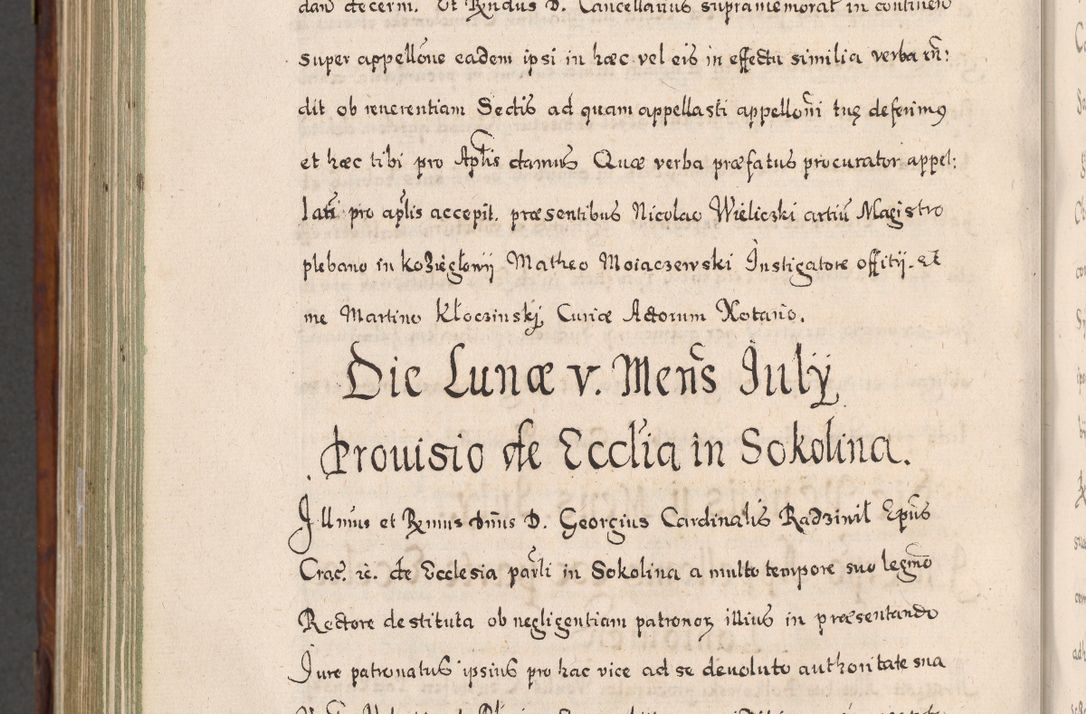 dan̄ decerni. Et Rn̄dus D. Cancellarius supramemorat̄ in continen̄
super appellōne eadem ipsi in hæc vel eis in effectu similia verba rn̄:
dit ob reuerentiam Sedis ad quam appellasti appellōni tuę deferimꝰ
et hæc tibi pro Ap̄lis damus Quæ verba præfatus procurator appel:
lan̄ pro ap̄lis accepit. præsentibus Nicolao Wieliczki artiū Magistro
plebano in koziegłowij Matheo Moiaczewski Instigatore offitij. et
me Martino Kłoczinskj, Curiæ Actorum Notario.
Die Lunæ v. Men̄s Julÿ
Prouisio de Eccl̄ia in Sokolina.
Jllm̄us et Rm̄us Dn̄us D. Georgius Cardinalis Radziuil Ep̄us
Crac. rc. de Ecclesia par̄li in Sokolina a multo tempore suo legm̄o
Rectore destituta ob negligentiam patronoꝝ illius in præsentando
Jure patronatus ipsius pro hac vice ad se deuoluto authoritate sua